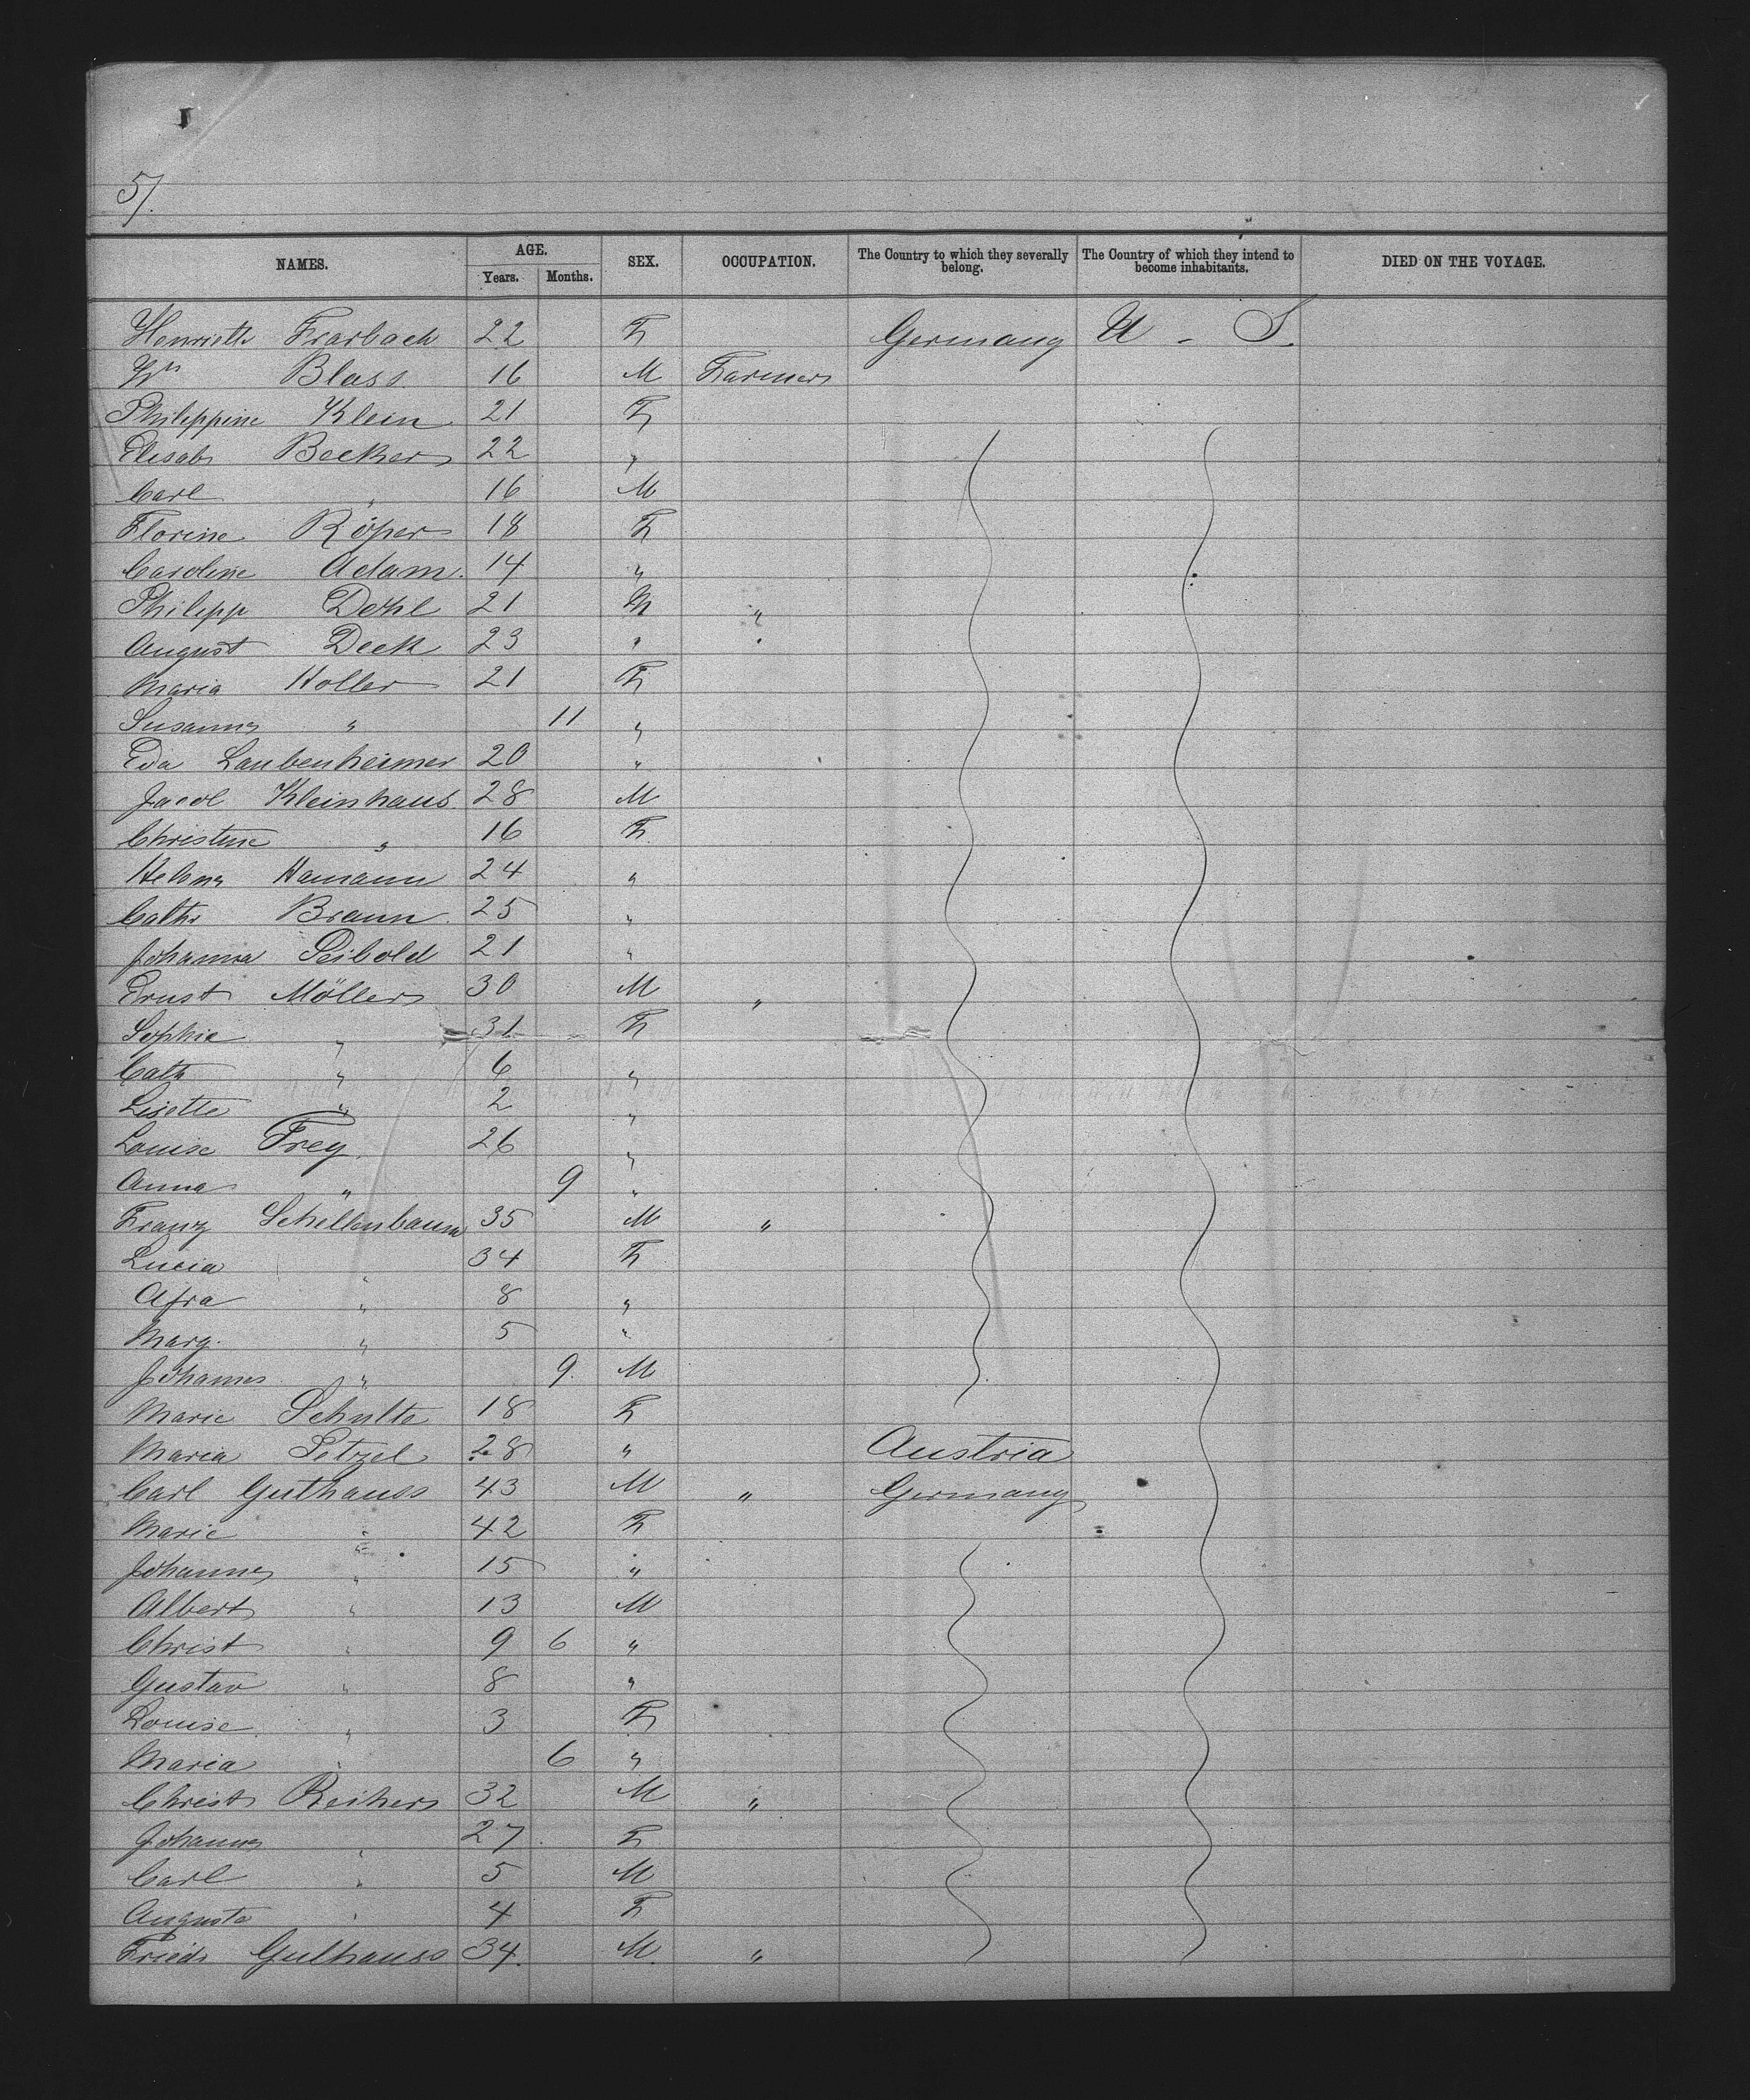 5/.
NAMES. AGE. Years. Months. SEX. OCCUPATION. The Country to which they severally belong. The Country of which they intend to become inhabitants. DIED ON THE VOYAGE.
Henrieth Frarbach 22 F Germany U - S.
Wm Blass 16 M Farmer
Philippine Klein 21 F
Elisab Becker 22 "
Carl " 16 M
Florine Röper 18 F
Caroline Adam. 14 "
Philipp Dehl 21 M "
August Deek 23 " "
Maria Holler 21 F
Susanna " 11 "
Eva Laubenheimer 20 "
Jacob Kleinhaus 28 M
Christine " 16 F.
Helena Hamann 24 "
Cathr Braun. 25 "
Johanna Seibold 21 "
Ernst Möller 30 M "
Sophie " 31 F
Cath " 6 "
Lisette " 2 "
Louise Frey. 26 "
Anna " 9 "
Franz Schellenbaum 35 M "
Lucia " 34 F
Afra " 8 "
Marg. " 5 "
Johannes " 9. M
Marie Schulte 18 F
Maria Setzel 28 " Austria
Carl Guthauss 43 M " Germany
Marie " 42 F
Johanna " 15 "
Albert " 13 M
Christ " 9 6 "
Gustav " 8 "
Louise " 3 F
Maria " 6 "
Christ Reiher 32 M "
Johanna " 27. F
Carl " 5 M
Augusta " 4 F
Friedr Guthauss 34. M. "